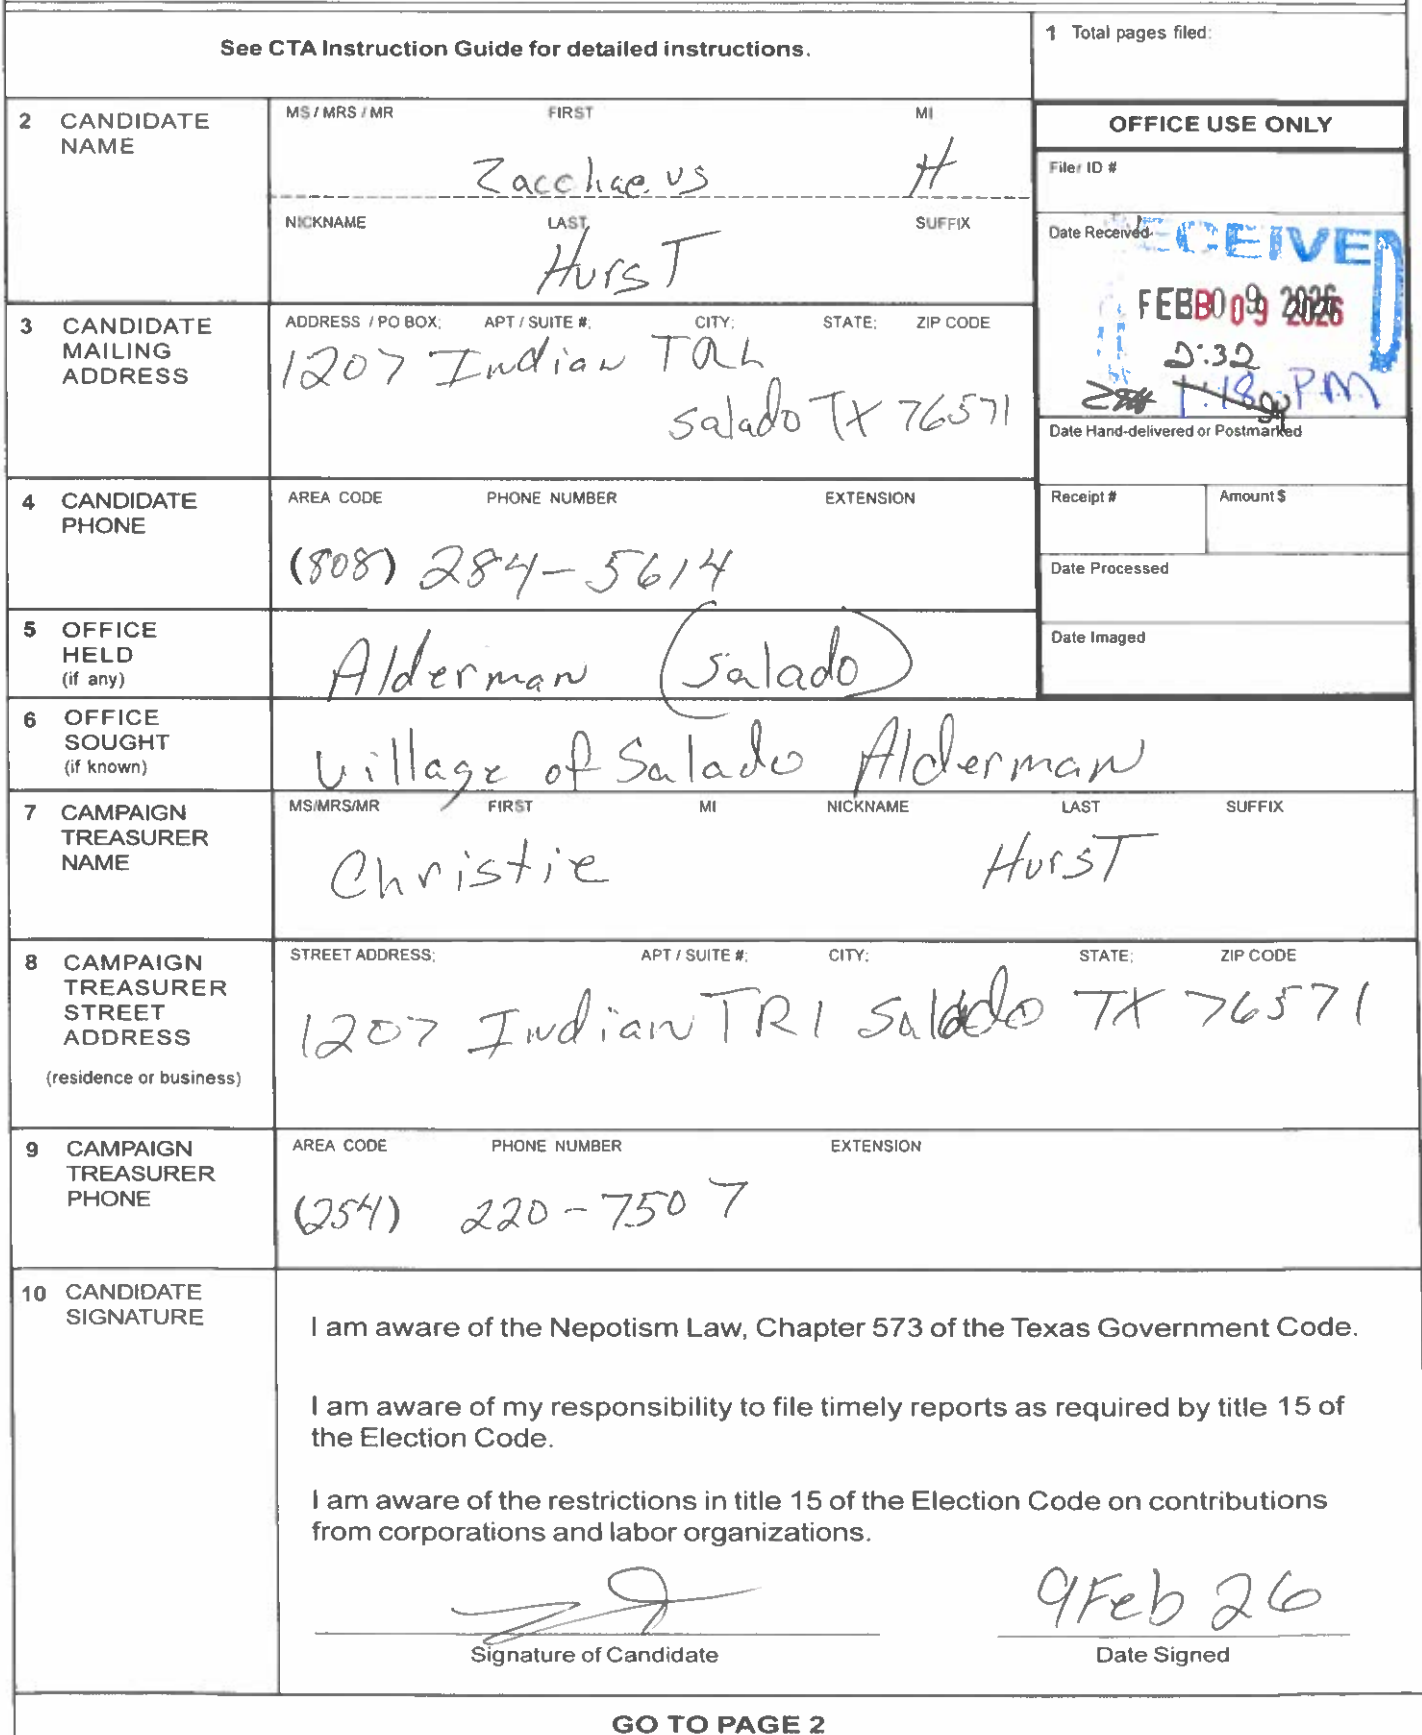 See CTA Instruction Guide for detailed instructions.
1 Total pages filed:
2 CANDIDATE NAME
MS / MRS / MR FIRST MI
Zacchaeus H
NICKNAME LAST SUFFIX
Hurst
OFFICE USE ONLY
Filer ID #
Date Received
ECEIVED
FEB 09 2026
2:32
1:18 PM
Date Hand-delivered or Postmarked
Receipt # Amount $
Date Processed
Date Imaged
3 CANDIDATE MAILING ADDRESS
ADDRESS / PO BOX; APT / SUITE #; CITY; STATE; ZIP CODE
1207 Indian TRL
Salado TX 76571
4 CANDIDATE PHONE
AREA CODE PHONE NUMBER EXTENSION
(808) 284-5614
5 OFFICE HELD (if any)
Alderman (Salado)
6 OFFICE SOUGHT (if known)
Village of Salado Alderman
7 CAMPAIGN TREASURER NAME
MS/MRS/MR FIRST MI NICKNAME LAST SUFFIX
Christie Hurst
8 CAMPAIGN TREASURER STREET ADDRESS
(residence or business)
STREET ADDRESS; APT / SUITE #; CITY; STATE; ZIP CODE
1207 Indian TRl Salado TX 76571
9 CAMPAIGN TREASURER PHONE
AREA CODE PHONE NUMBER EXTENSION
(254) 220-7507
10 CANDIDATE SIGNATURE
I am aware of the Nepotism Law, Chapter 573 of the Texas Government Code.
I am aware of my responsibility to file timely reports as required by title 15 of
the Election Code.
I am aware of the restrictions in title 15 of the Election Code on contributions
from corporations and labor organizations.
9 Feb 26
Signature of Candidate Date Signed
GO TO PAGE 2